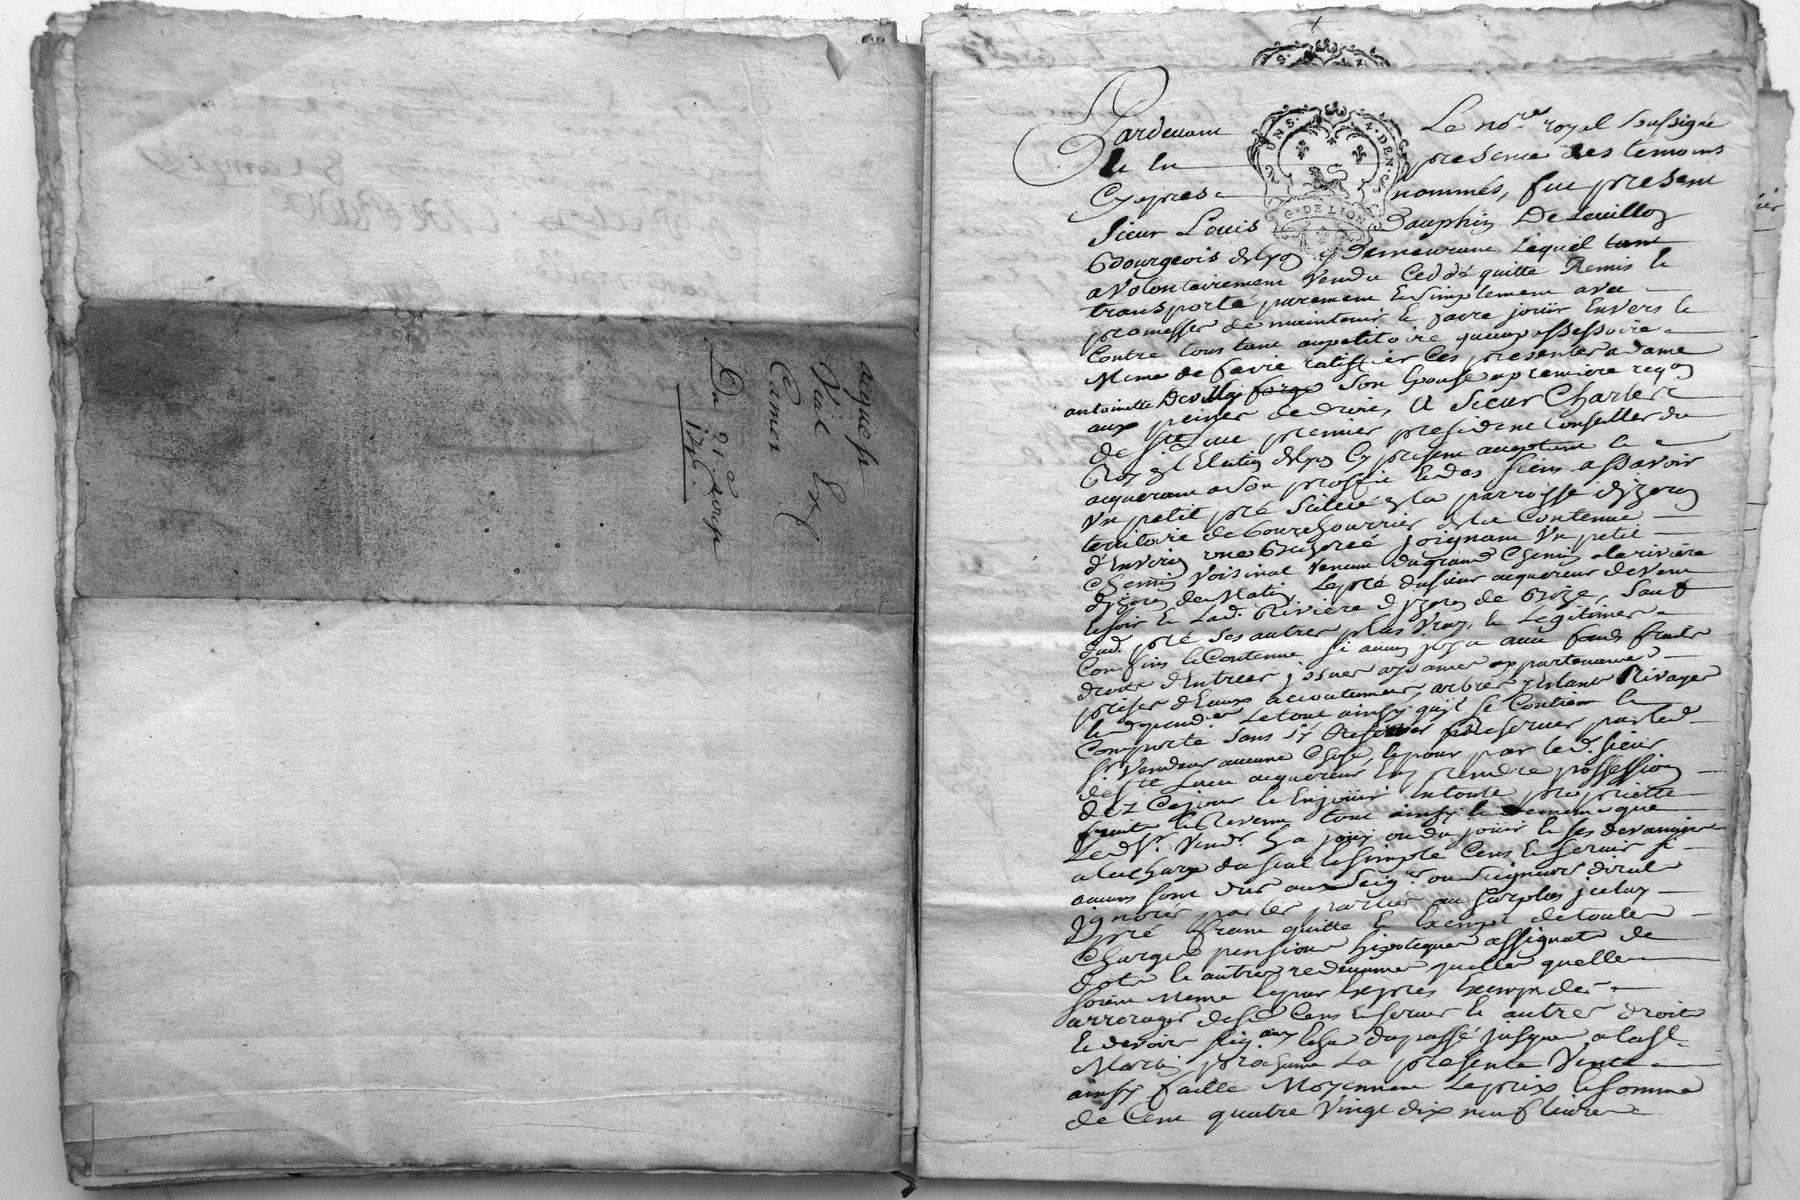 acquest
Vial
Du 21e
1716
UN S. 4 DEN.
G. DE LION
Pardevant Le nore royal soussigné
Et en presence des temoins
Cyapres nommés, fut present
Sieur Louis Dauphin De
Bourgeois de Lyon y Demeurant Lequel
a Volontairement Vendu Ceddé quitté Remis Et
transporté purement Et simplement avec
promesse de maintenir Et faire jouir Envers Et
Contre tous tant au petitoire qu'au possessoire
Meme de faire ratiffier Ces presentes a dame
antoinette son Epouse a premiere req
aux peines de droit, A Sieur Charles
de Ste premier president Conseiller du
Roy En L'Election de Lyon Cy present acceptant Et
acquerant a Son proffit Et des siens assavoir
Un petit pré Scitué En La parroisse d'yzeron
territoire de de la Contenue
d'Environ une joignant Un petit
Chemin Voisinal Venant du grand Chemin a la riviere
d'yzeron de Matin, Le pré du sieur acquereur de Vent
Et soir Et Lad. Riviere d'yzeron de Bize, Sauf
dud. pré Ses autres plus Vrays Et Legitimes
Confins Et Contenue Si aucuns y a avec fonds fruits
droits d'Entrees issues aysances appartenances
prises d'Eaux arbres y Estants Rivages
Le tout ainsy qu'il se Contient Et
Comporte Sans s'y Reserver par led.
Sr Vendeur aucune Chose, Et pour par led. sieur
de Ste acquereur En prendre possession
dez Cejour Et En jouir En toute proprietté
fruits Et Revenus tout ainsy Et de meme que
Led. Sr. Vendr. En a jouy ou du jouir Et ses devanciers
a la Charge du Seul Et Simple Cens Et Servis si
aucuns sont dus aux Seigrs ou Seigneurs directs
ignorés par les parties au Surplus iceluy
pré franc quitte Et Exempt de toutes
Charges pensions hipoteques assignats de
dots Et autres redevances quelles quelles
soient Meme Et par Expres Exempt des
arrerages desd. Cens Et Servis Et autres droits
Et devoirs seigaux du passé jusques a la St
Martin prochaine La presente Vente
ainsy faitte Moyennant Le prix Et Somme
de Cent quatre Vingt dix neuf Livres